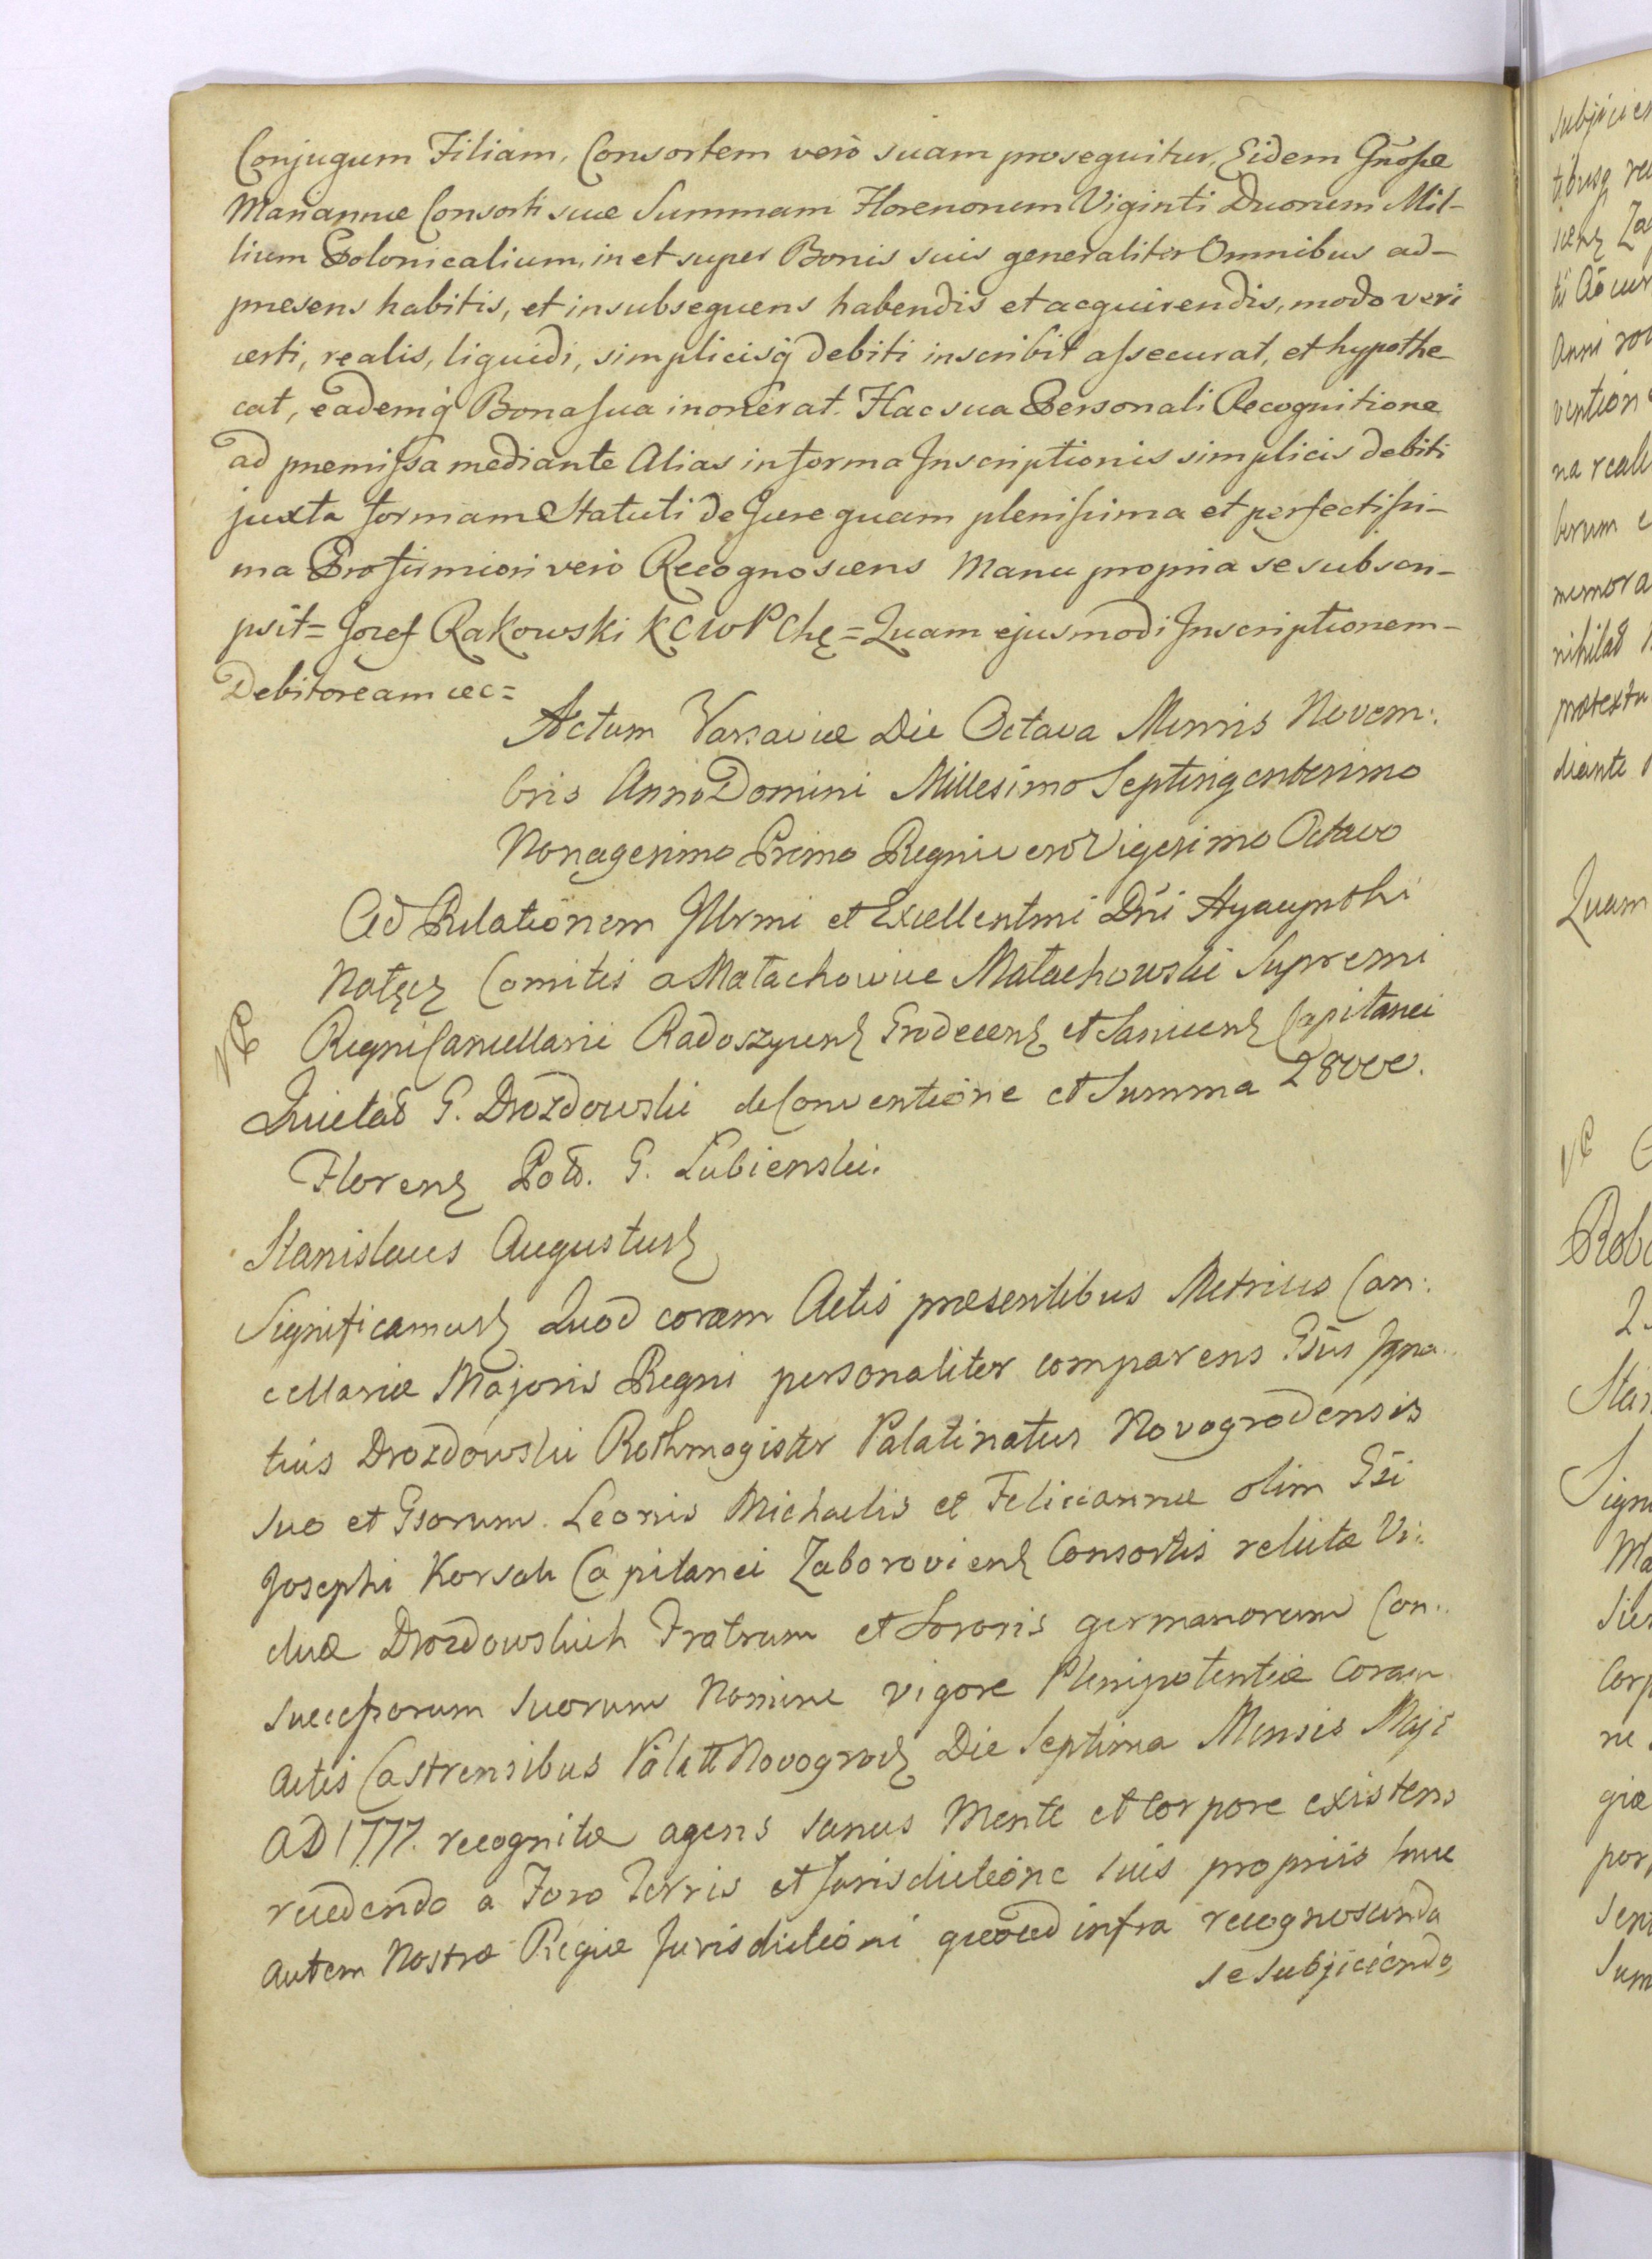 Conjugum Filiam, Consortem verò suam prosequitur, Eidem Gñosæ
Mariannæ Consorti suæ Summam Florenorum Viginti Duorum Mil-
lium Polonicalium, in et super Bonis suis generaliter Omnibus ad-
presens habitis, et in subsequens habendis et acquirendis, modo veri
certi, realis, liquidi, simplicisq̃ debiti inscribit assecurat, et hypothe-
cat, eademq̃ Bona sua inonerat. Hac sua Personali Recognitione
ad premissa mediante Alias in forma Inscriptionis simplicis debiti
juxta formam Statuti de Jure quam plenissima et perfectissi-
ma Pro firmiori verò Recognoscens Manu propria se subscri-
psit = Jozef Rakowski KCWPChę = Quam ejusmodi Inscriptionem -
Debitoream cec =
Actum Varsaviæ Die Octava Mensis Novem:
bris Anno Domini Millesimo Septingentesimo
Nonagesimo Primo Regni vero Vigesimo Octavo
Ad Relationem Illrmi et Excellentmi Dñi Hyacynthi
Nałęcz Comitis a Małachowice Małachowski Supremi
Regni Cancellarii Radoszycens Grodecens et Sanicens Capitanei
VC
Quietat G. Drozdowski de Conventione et Summa 28000.
Florens Pol. G. Lubienski.
Stanislaus Augustus
Significamus Quod coram Actis præsentibus Metrices Can:
cellariæ Majoris Regni personaliter comparens Gsus Igna:
tius Drozdowski Rothmagister Palatinatus Novogrodensis
suo et Gsorum Leonis Michaelis et Feliciannæ olim Gsi
Josephi Korsak Capitanei Zaboroviens Consortis relictæ Vi:
duæ Drozdowskich Fratrum et Sororis germanorum Con:
successorum suorum Nomine vigore Plenipotentiæ coram
Actis Castrensibus Palatt Novogrod Die Septima Mensis Maji
AD 1777. recognitæ agens sanus Mente et Corpore existens
recedendo a Foro Terris et Jurisdictione suis propriis huic
autem Nostræ Regiæ Jurisdictioni quoad infra recognoscenda
se subjiciendo,